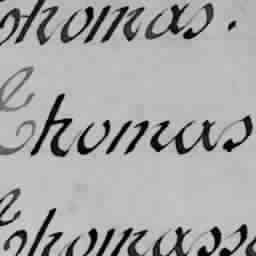 Thomas.
Thomas
Thomass